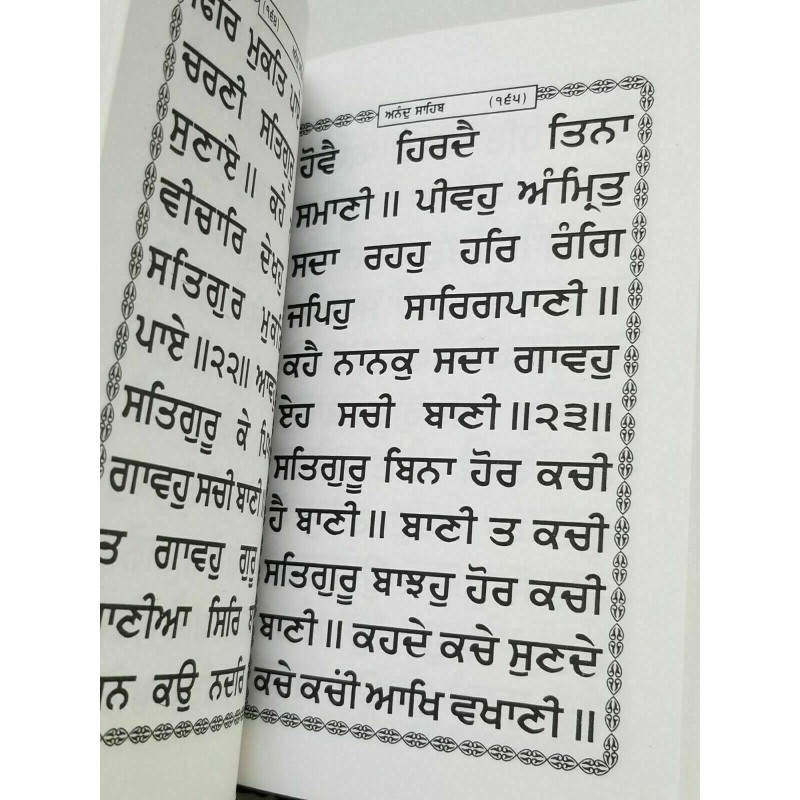 (੧੬੪)
ਮੁਕਤਿ
ਚਰਣੀ ਸਤਿਗੁਰੂ
ਸੁਣਾਏ॥ ਕਹੈ
ਵੀਚਾਰਿ ਦੇਖਹੁ
ਸਤਿਗੁਰ
ਪਾਏ॥੨੨॥
ਸਤਿਗੁਰੂ ਕੇ
ਗਾਵਹੁ ਸਚੀ ਬਾਣੀ
ਤ ਗਾਵਹੁ ਗੁਰੂ
ਸਿਰਿ
ਕਉ ਨਦਰਿ
ਅਨੰਦੁ ਸਾਹਿਬ (੧੬੫)
ਹੋਵੈ ਹਿਰਦੈ ਤਿਨਾ
ਸਮਾਣੀ॥ ਪੀਵਹੁ ਅੰਮ੍ਰਿਤੁ
ਸਦਾ ਰਹਹੁ ਹਰਿ ਰੰਗਿ
ਜਪਿਹੁ ਸਾਰਿਗਪਾਣੀ॥
ਕਹੈ ਨਾਨਕੁ ਸਦਾ ਗਾਵਹੁ
ਏਹ ਸਚੀ ਬਾਣੀ॥੨੩॥
ਸਤਿਗੁਰੂ ਬਿਨਾ ਹੋਰ ਕਚੀ
ਹੈ ਬਾਣੀ॥ ਬਾਣੀ ਤ ਕਚੀ
ਸਤਿਗੁਰੂ ਬਾਝਹੁ ਹੋਰ ਕਚੀ
ਬਾਣੀ॥ ਕਹਦੇ ਕਚੇ ਸੁਣਦੇ
ਕਚੇ ਕਚੀਂ ਆਖਿ ਵਖਾਣੀ॥